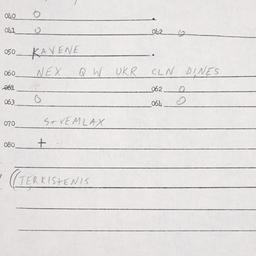 040 0
041 0 042 0
050 KAVENE
060 NEX QW UKR CLN DINES
061 062 0
063 0 064 0
070 S+VEMLAX
080 +
((TERKISTENIS